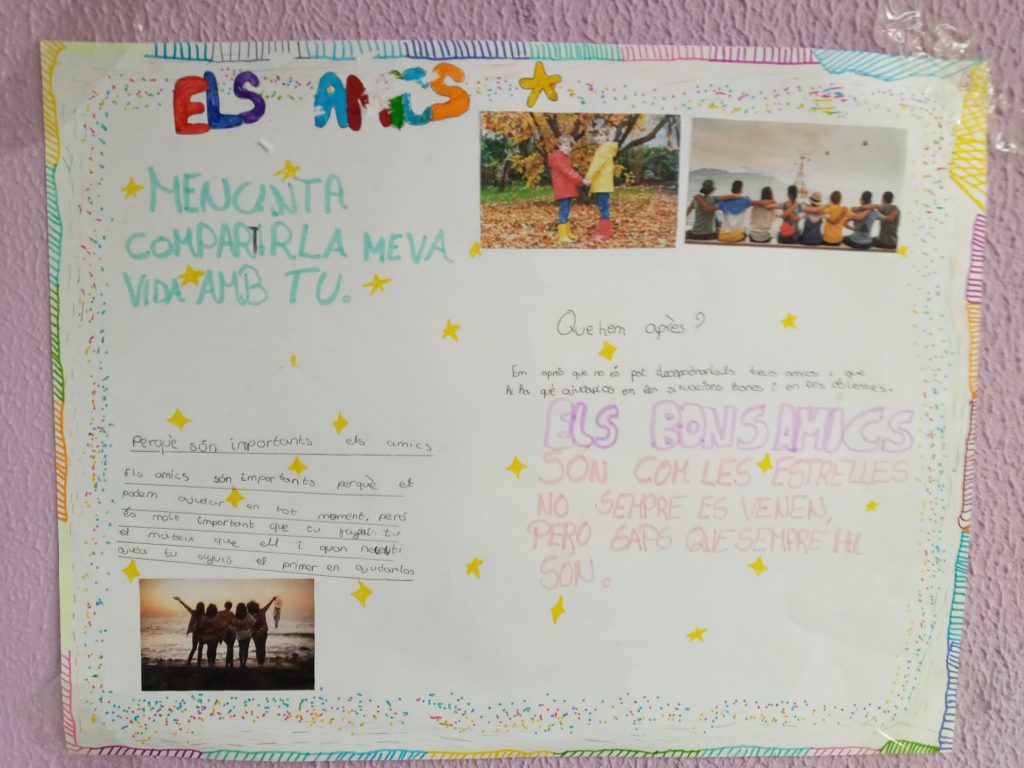 ELS AMICS
MENCANTA
COMPARTIR LA MEVA
VIDA AMB TU.
Que hem après?
Em après que no és pot decepcionar als teus amics i que
hi ha què ajudarlos en les situacions bones i en les dolentes.
ELS BONS AMICS
SON COM LES ESTRELLES
NO SEMPRE ES VENEN,
PERO SAPS QUE SEMPRE HI
SON.
Perquè són importants els amics
Els amics són importants perquè et
poden ajudar en tot moment, però
és molt important que tu tu
el mateix que ell i quan necesiti
ajuda tu siguis el primer en ajudarlos